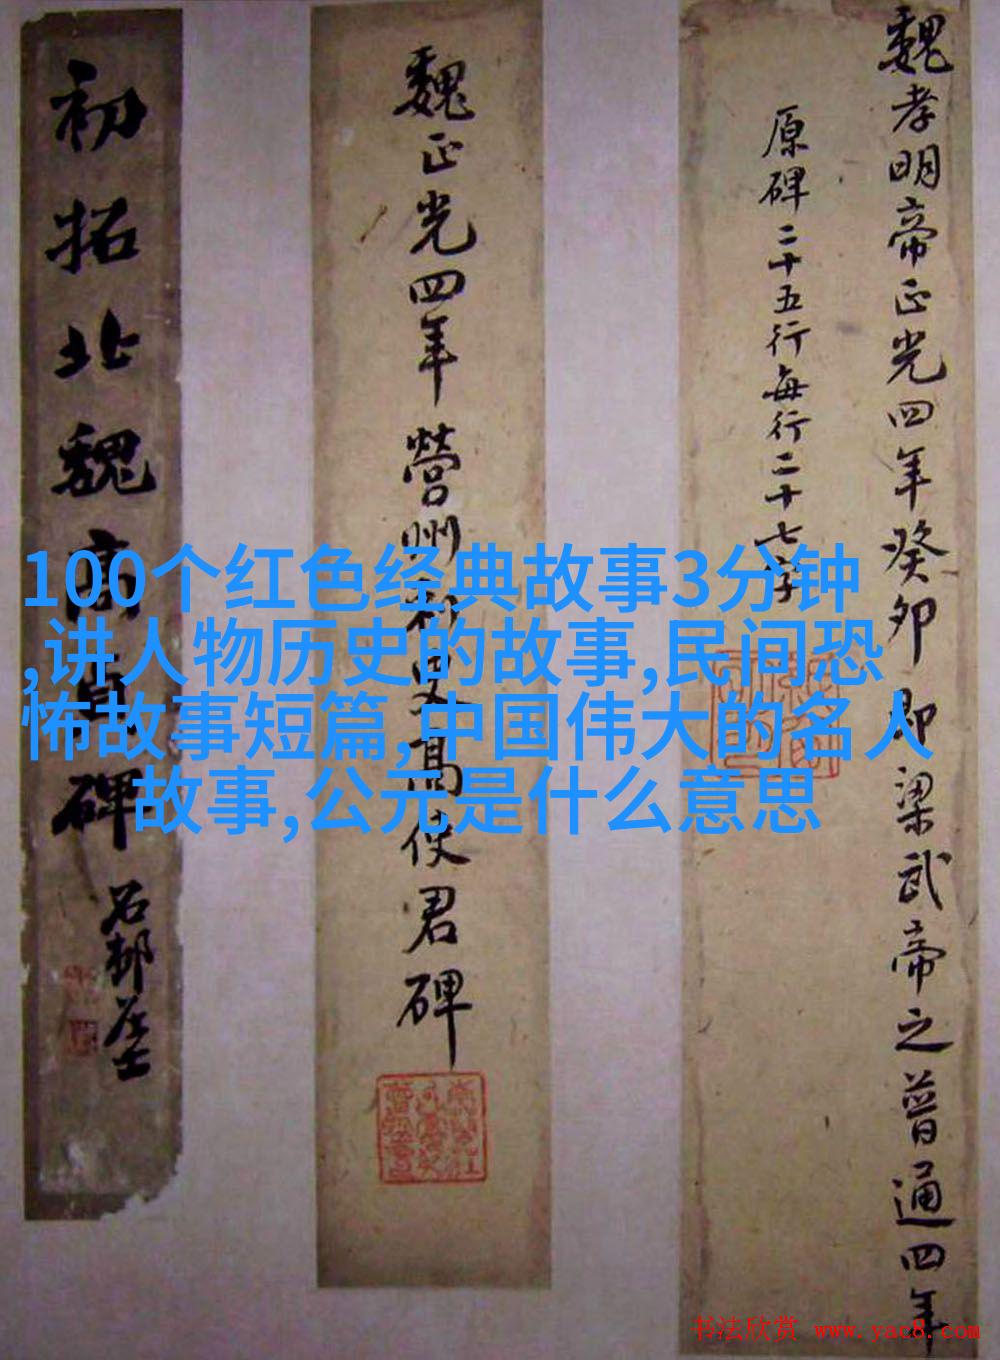 魏孝明帝正光四年癸卯即梁武帝之普通四年
原碑二十五行每行二十七字
魏正光四年營州刺史高使君碑
初拓北魏高貞碑
100个红色经典故事3分钟
,讲人物历史的故事,民间恐
怖故事短篇,中国伟大的名人
故事,公元是什么意思
书法欣赏 www.yac8.com